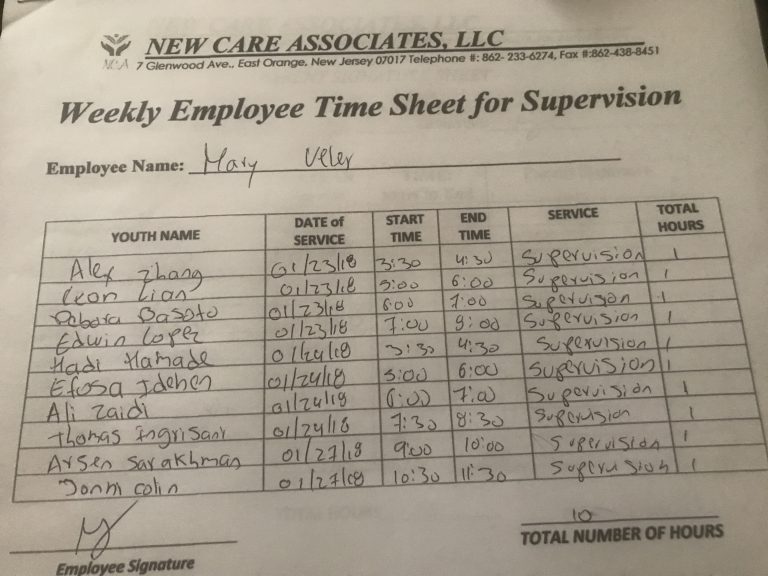 NEW CARE ASSOCIATES, LLC
NCA 7 Glenwood Ave., East Orange, New Jersey 07017 Telephone #: 862- 233-6274, Fax #:862-438-8451
Weekly Employee Time Sheet for Supervision
Employee Name: Mary Veler
YOUTH NAME DATE of SERVICE START TIME END TIME SERVICE TOTAL HOURS
Alex Zhang 01/23/18 3:30 4:30 Supervision 1
Leon Lian 01/23/18 5:00 6:00 Supervision 1
Basoto 01/23/18 6:00 7:00 Supervision 1
Edwin Lopez 01/23/18 7:00 9:00 Supervision 1
Hadi Hamade 01/24/18 3:30 4:30 Supervision 1
Efosa Idehen 01/24/18 5:00 6:00 Supervision 1
Ali Zaidi 01/24/18 6:00 7:00 Supervision 1
Thomas Ingrisani 01/24/18 7:30 8:30 Supervision 1
Arsen Sarakhman 01/27/18 9:00 10:00 Supervision 1
Colin 01/27/18 10:30 11:30 Supervision 1
10
Employee Signature
TOTAL NUMBER OF HOURS